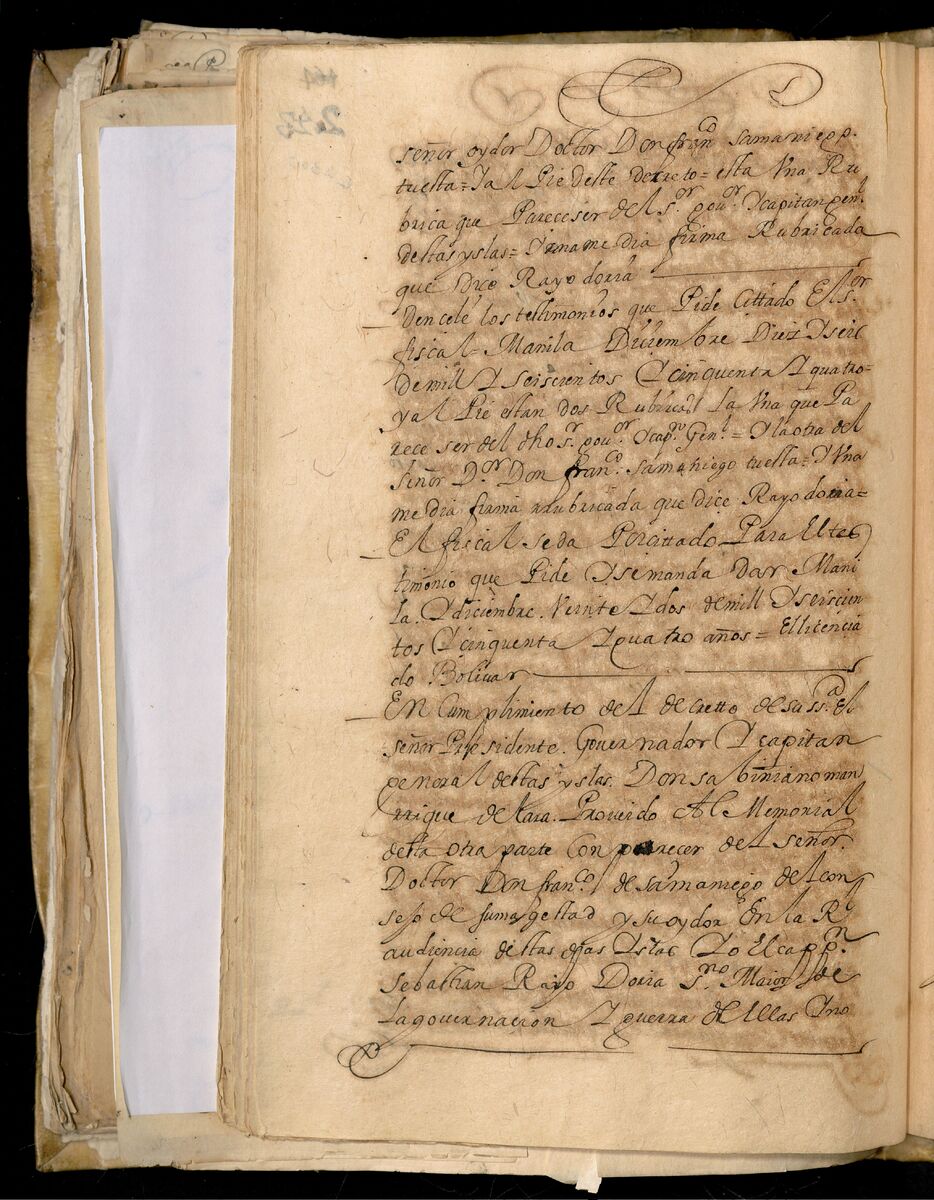 señor oydor Doctor Don fran.co Samaniego
tuesta = Y al Pie deste decreto = esta Vna Ru
brica que Parece ser del s.or gou.or Y capitan gen.l
destas yslas = Y una media firma Rubricada
que dice Rayo doria
Densele los testimonios que Pide Cittado El s.or
fiscal = Manila Diciembre Diez Y seis
de mill Y seiscientos Y cinquenta Y quatro =
y al Pie estan dos Rubricas la Vna que Pa
rece ser del dho s.or gou.or Y cap.n Gen.l = Y la otra del
señor D.or Don fran.co Samaniego tuesta = Y Vna
media firma rrubricada que dice Rayo doria =
El fiscal se da Por cittado Para El tes
timonio que Pide Y se manda dar Mani
la. Y diciembre. Veinte Y dos de mill Y seiscien
tos Y cinquenta Y quatro años = El licencia
do Bolivar
EN Cumplimiento del decretto de su ss.a El
señor Presidente. Governador Y capitan
general destas yslas. Don sabiniano man
rrique de Lara. Proveido Al Memorial
desta otra parte Con parecer del señor.
Doctor Don fran.co de samaniego del con
sejo de su magestad y su oydor En la R.l
audiencia destas dhas Yslas Yo El capp.n
Sebastian Rayo Doria s.no Maior de
La governacion Y guerra de Ellas Y no